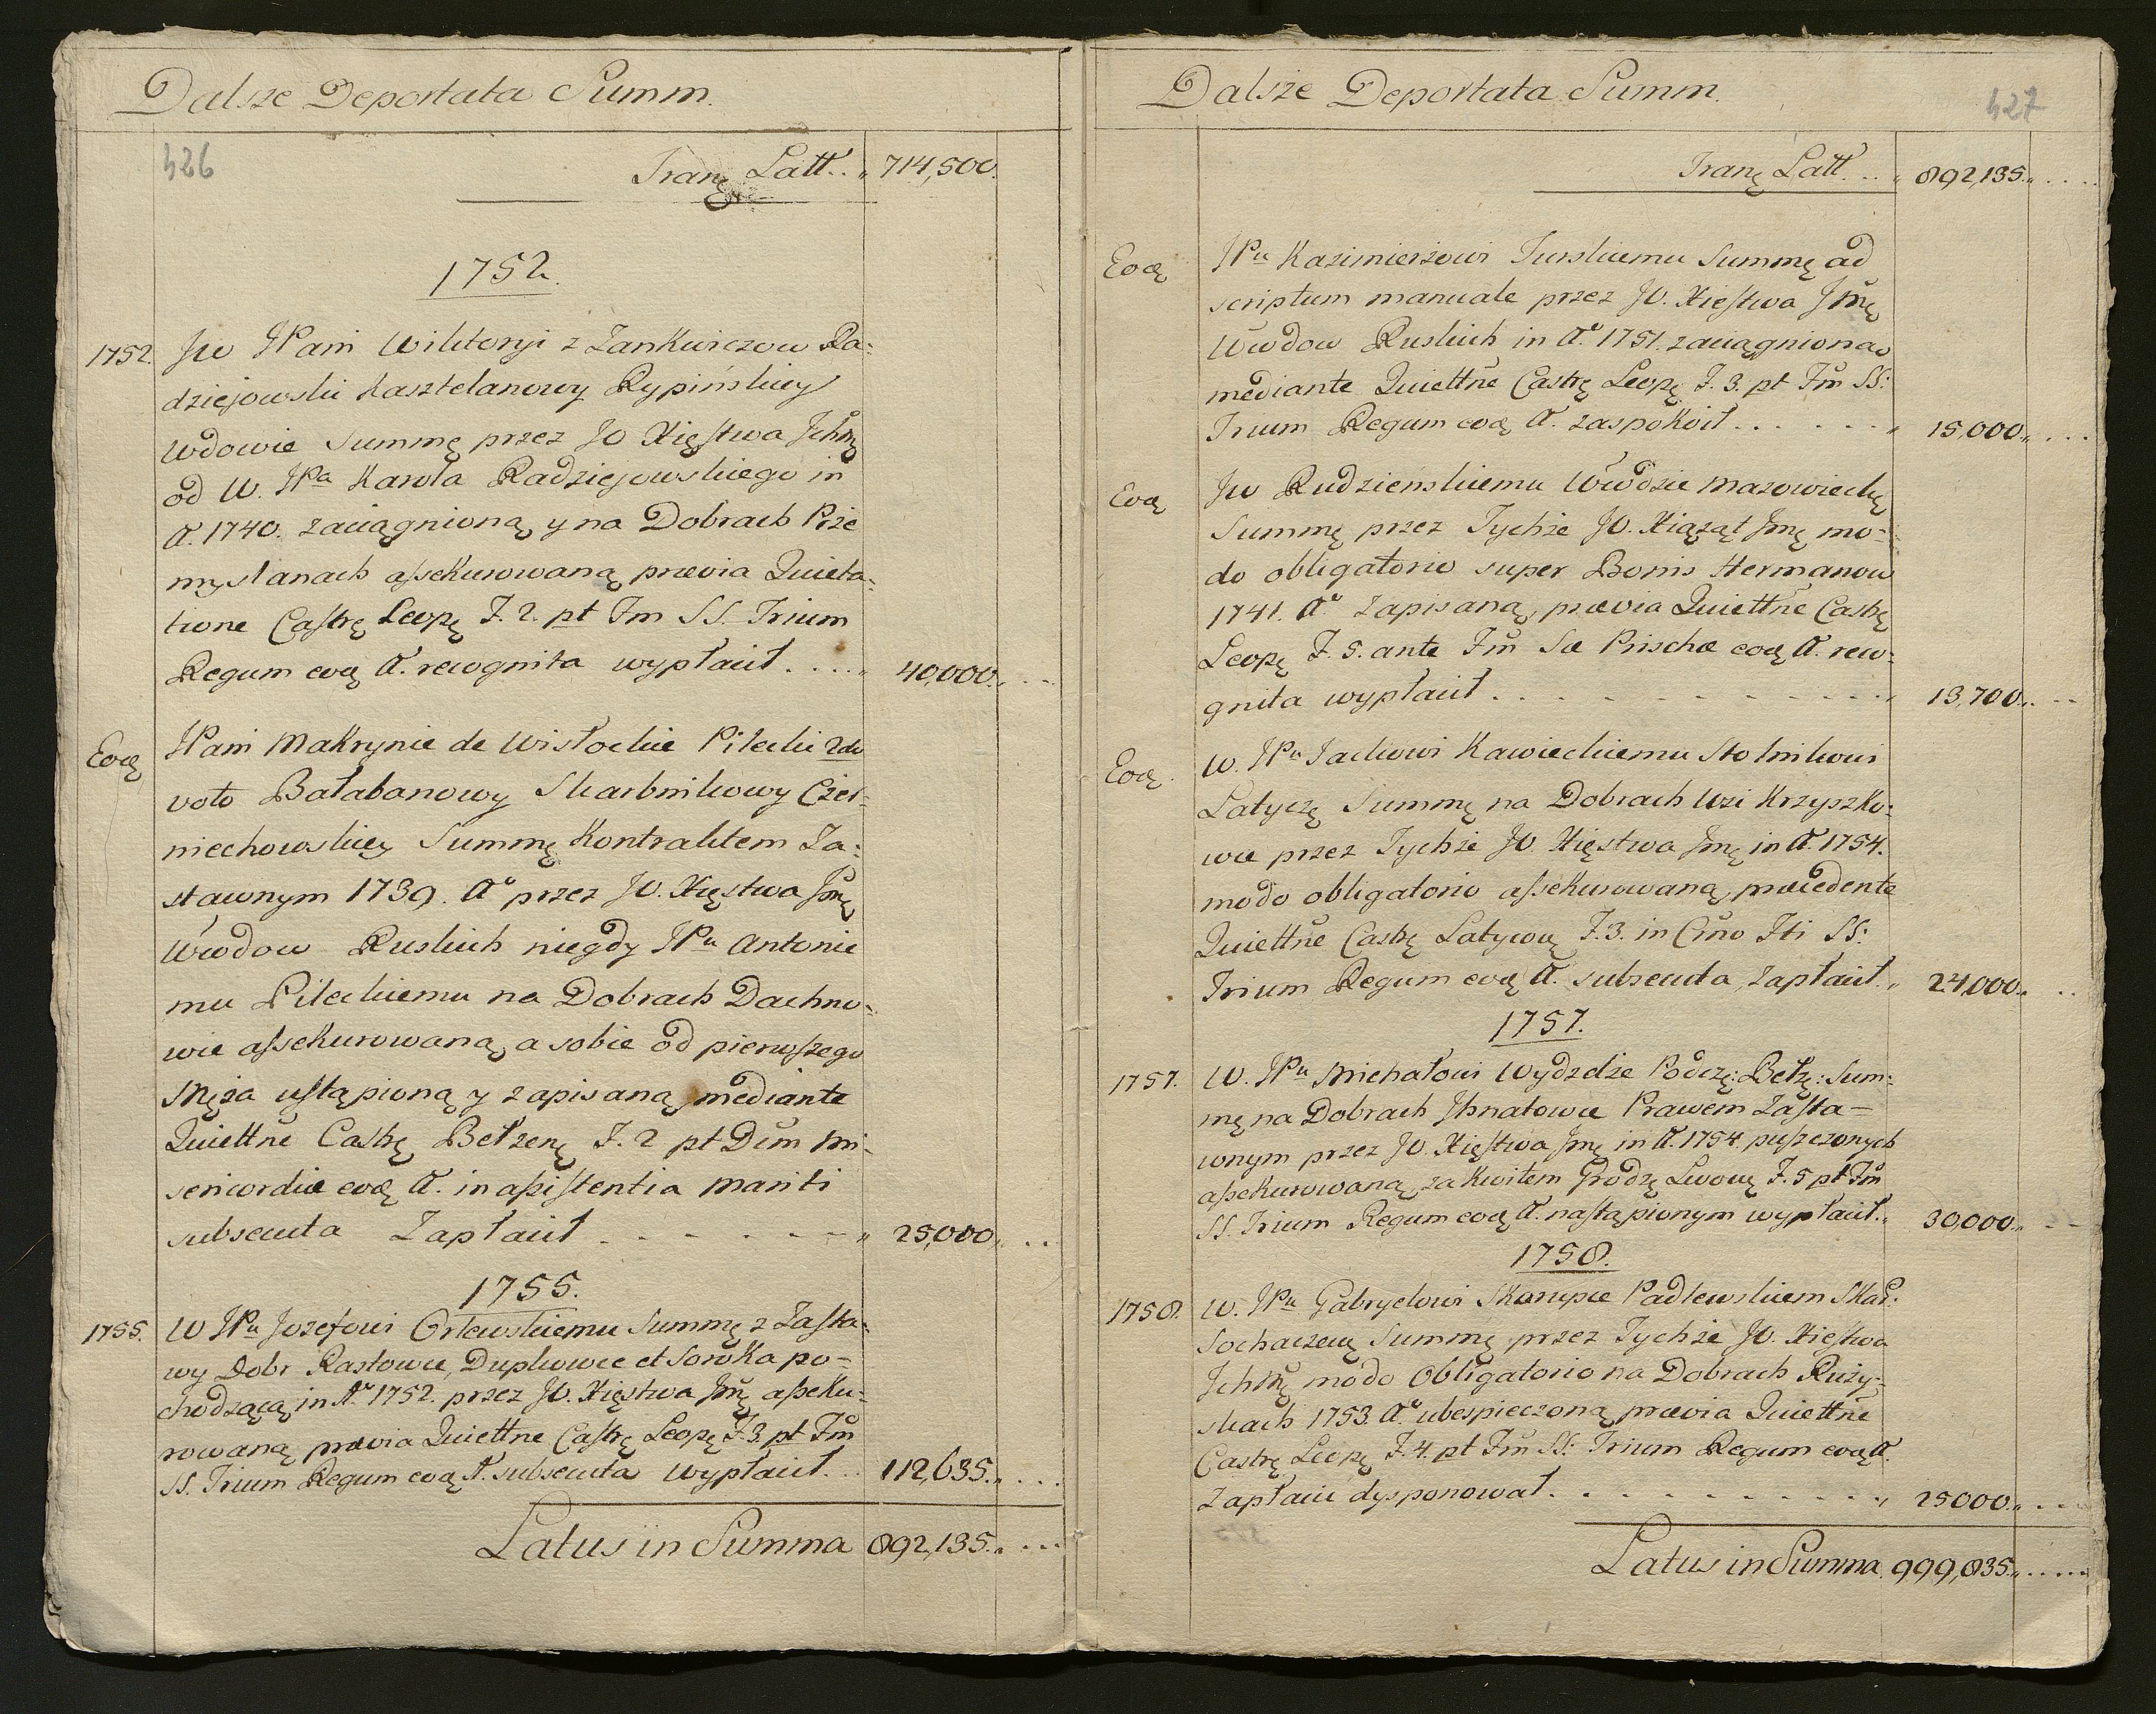 Dalsze Deportata Summ.
426
Tranę Latt.. 714,500.
1752.
1752. Jw JPani Wiktoryi z Zankwiczow Ra:
dziejowski Kasztelanowy Rypińskiey
Wdowie Summę przez JO Xięstwa Ichmę
od W. JPa Karola Radziejowskiego in
A. 1740. zaciągnioną y na Dobrach Prze
myslanach assekurowaną prævia Quieta:
tione Castrę Leopę F. 2. pt Fm SS. Trium
Regum eoę A. recognita wypłacił.... 40,000..
Eoę JPani Makrynie de Wisłockie Pileckie 2do
voto Bałabanowy Skarbnikowy Czer:
niechowskiey Summę Kontraktem Za:
stawnym 1739. A° przez JO. Xięstwa Jmę
Wwdow Ruskich niegdy JPu Antonie
mu Pileckiemu na Dobrach Dachno:
wie assekurowaną, a sobie od pierwszego
Męża ustąpioną y zapisaną, mediante
Quiettne Castrę Bełzenę F. 2 pt Dim Mi:
sericordiæ eoę A. in assistentia Mariti
subsecuta Zapłacił - - - - - 25,000...
1755.
1755. W JPu Jozefowi Orlewskiemu Summę z Zasta:
wy Dobr Rastowce, Dupkowce et Soroka po=
chodzącą in A° 1752. przez JO. Xięstwa Jmę asseku:
rowaną prævia Quiettne Castrę Leopę F. 3. pt Fm
SS. Trium Regum eoę A. subsecuta wypłacił... 112,635....
Latus in Summa 892,135....
Dalsze Deportata Summ.
427
Tranę Latt... 892,135.....
Eoę JPu Kazimierzowi Turskiemu Summę ad
scriptum manuale przez JO. Xięstwa Jmę
Wwdow Ruskich in A° 1751. zaciągnioną
mediante Quiettne Castrę Leopę F. 3. pt Fm SS:
Trium Regum eoę A. zaspokoił...... 15,000....
Eoę Jw Rudzienskiemu Wwdzie Mazowieckę
Summę przez Tychże JO. Xiążąt Jmę mo=
do obligatorio super Bonis Hermanow
1741. A° zapisaną, prævia Quiettne Castrę
Leopę F. 5. ante Fm Sæ Priscæ eoę A. reco:
gnita wypłacił. - - - - - - - 13,700...
Eoę. W. JPu Jackowi Kawieckiemu Stolnikowi
Latyczę Summę na Dobrach Wsi Krzyszko:
wce przez Tychże JO. Xięstwa Jmę in A. 1754.
modo obligatorio assekurowaną, præcedente
Quiettne Castrę Latycvę F. 3. in Crno Fti SS:
Trium Regum eoę A. subsecuta, zapłacił.. 24,000...
1757.
1757. W. JPu Michałowi Wydzdze Podczę: Bełzę: Sum:
mę na Dobrach Ihnatowce Prawem Zasta=
wnym przez JO. Xięstwa Jmę in A. 1754. puszczonych
assekurowaną, za kwitem Grodzę Lwowę F. 5 pt Fm
SS. Trium Regum eoę A. nastąpionym wypłacił.. 30,000...
1758.
1758. W. JPu Gabryelowi Skarupce Padlewskiem Skar:
Sochaczew. Summę przez Tychże JO. Xięstwa
Ichmę modo Obligatorio na Dobrach Ruzy:
skach 1753. A° ubespieczoną prævia Quiettne
Castrę Leopę F. 4. pt Fm SS: Trium Regum eoę A.
Zapłacić dysponował. - - - - - - - 25000....
Latus in Summa 999,835......